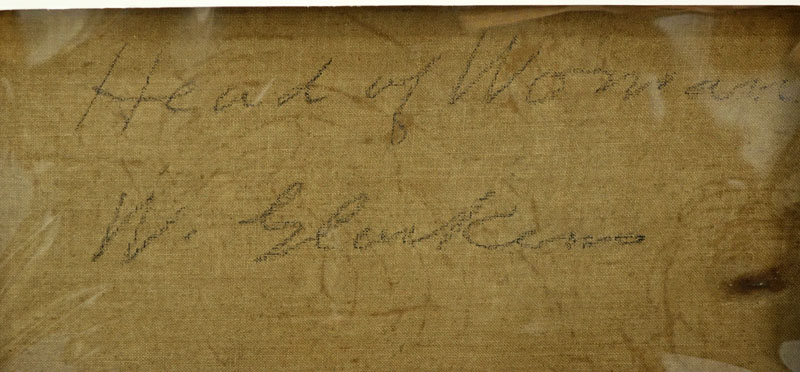 Head of Woman
W. Glacken